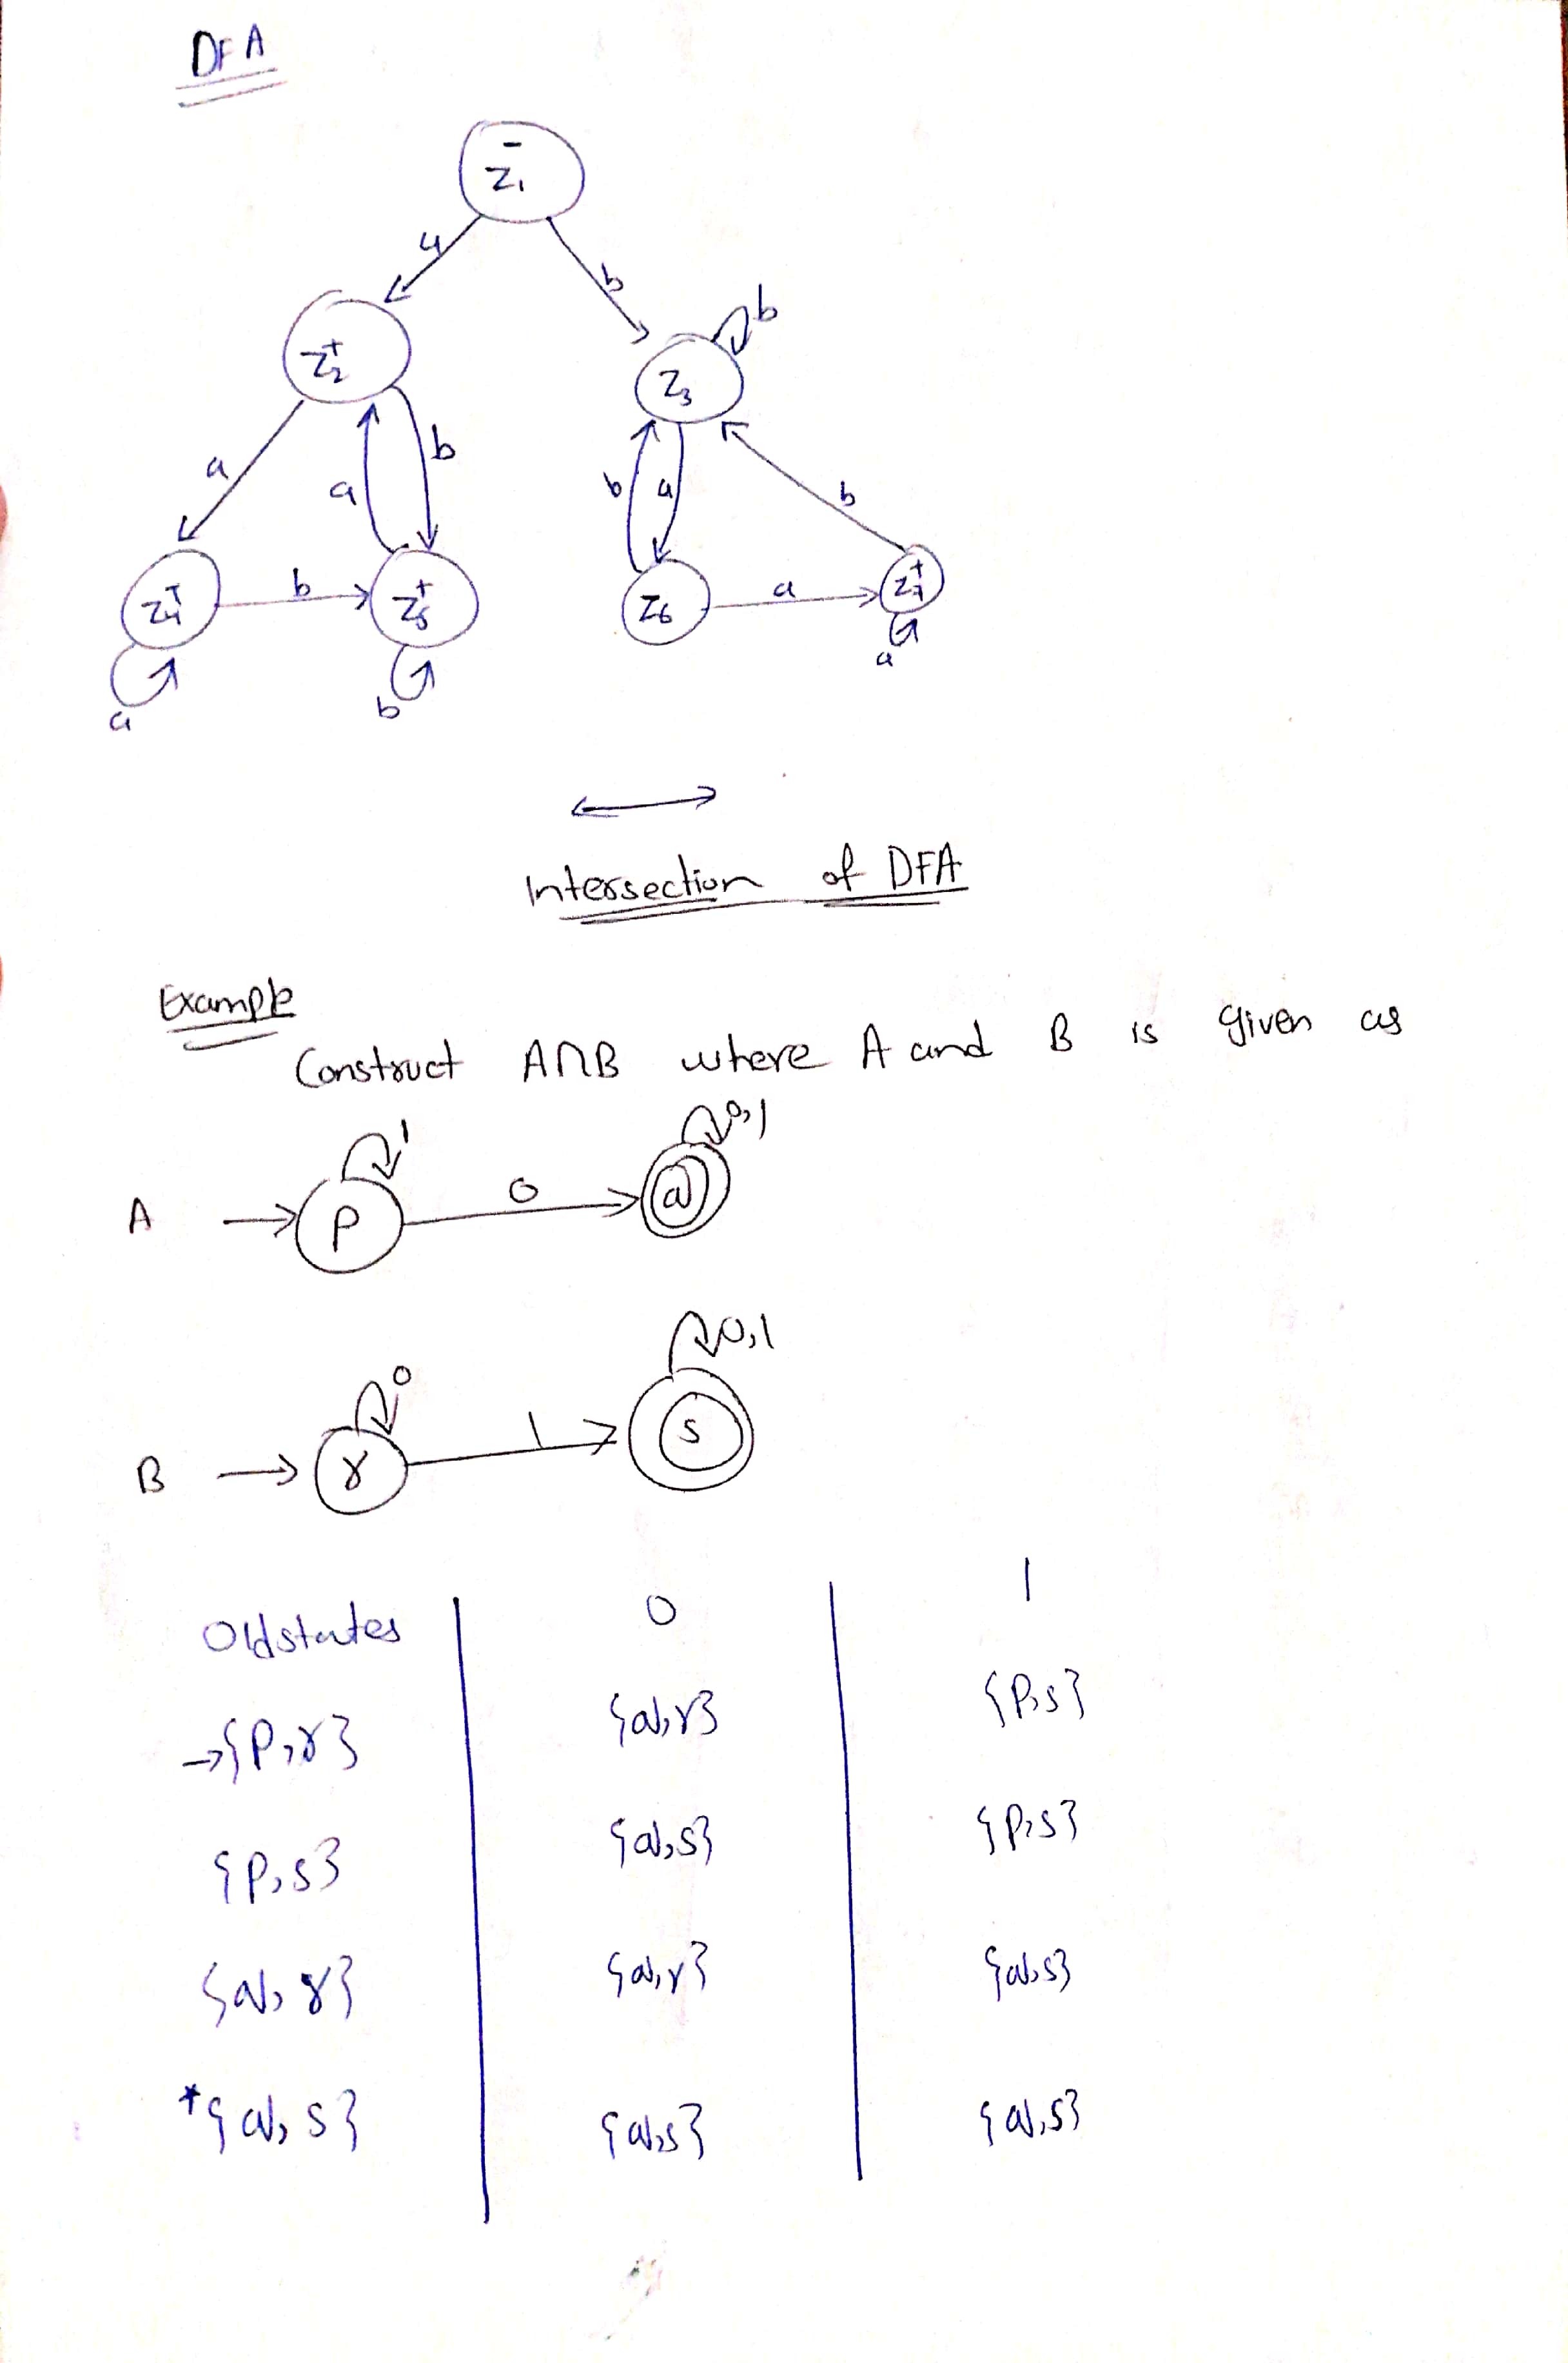 DFA
Z₁⁻
a b
b
Z₂⁺ Z₃
a a b b a b
Z₄⁺ b Z₅⁺ Z₆ a Z₇⁺
a b a
Intersection of DFA
Example
Construct A∩B where A and B is given as
1 0,1
A P 0 Q
0 0,1
B r 1 S
Old states 0 1
→{P,r} {Q,r} {P,S}
{P,S} {Q,S} {P,S}
{Q,r} {Q,r} {Q,S}
*{Q,S} {Q,S} {Q,S}